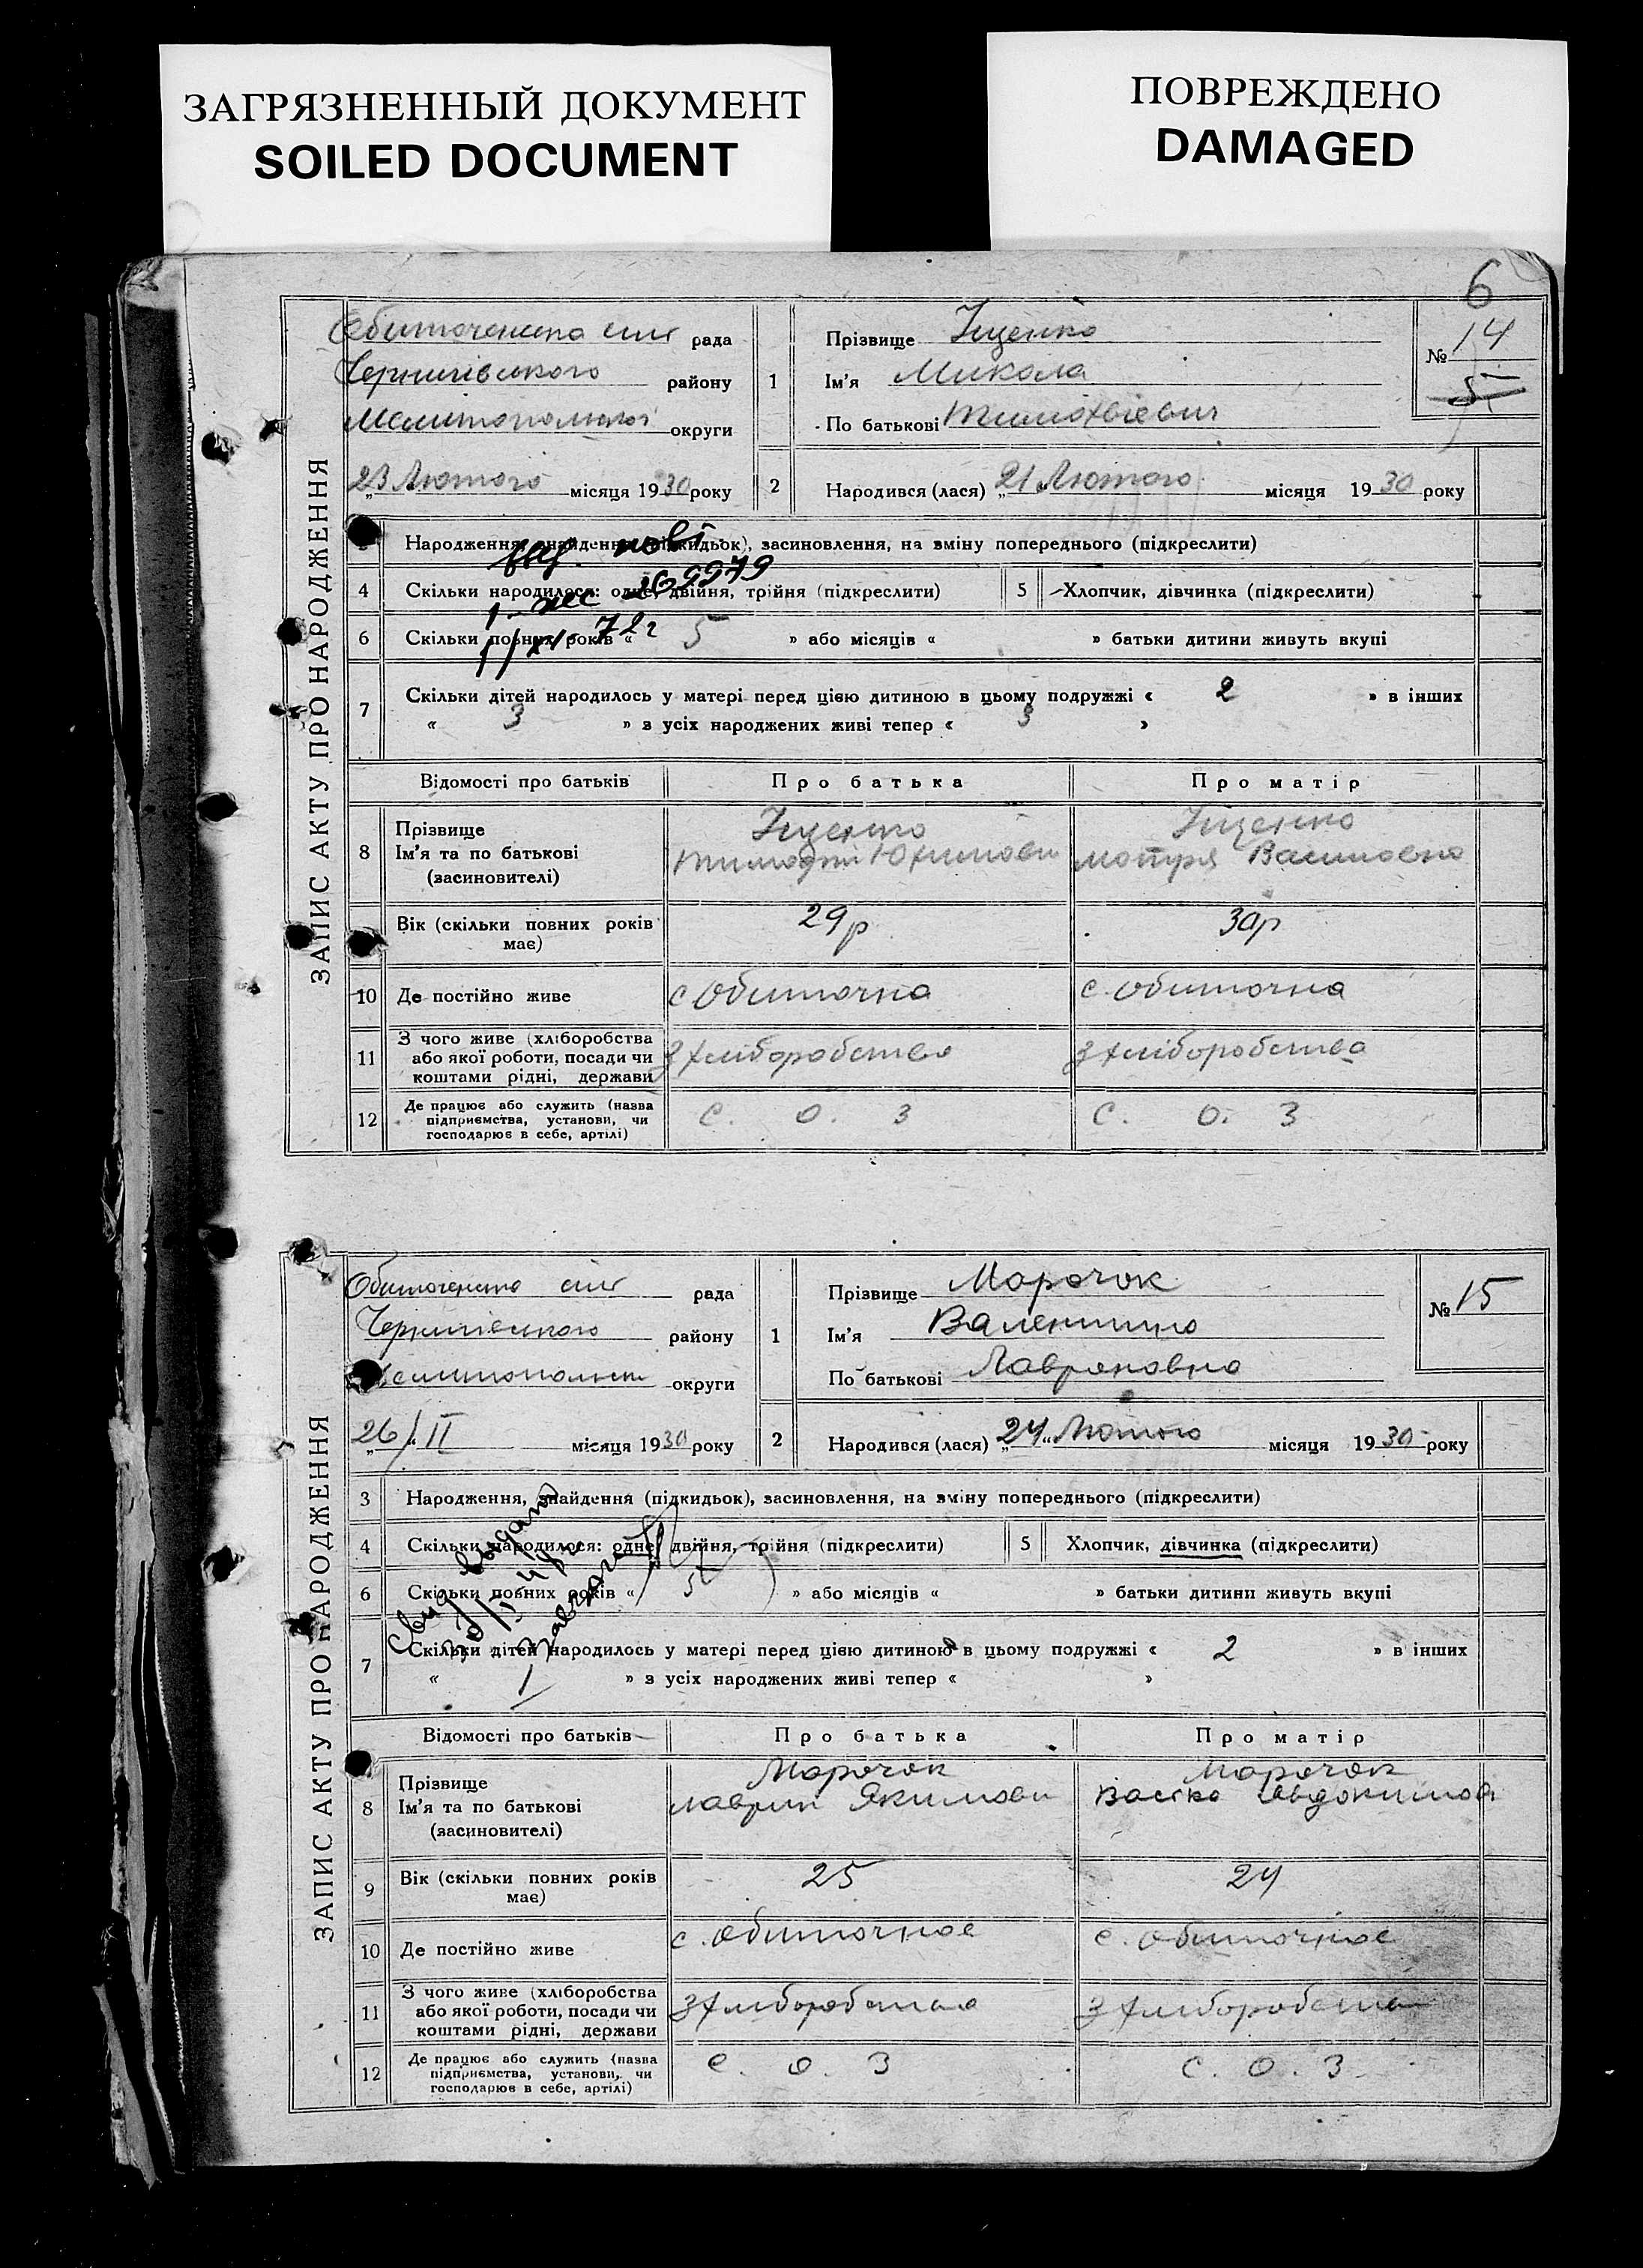 ЗАГРЯЗНЕННЫЙ ДОКУМЕНТ
SOILED DOCUMENT
ПОВРЕЖДЕНО
DAMAGED
6
ЗАПИС АКТУ ПРО НАРОДЖЕННЯ
рада
Чернигівського району
округи
„23 Лютого місяця 1930 року
1
Прізвище Іщенко
Ім'я Микола
По батькові
№ 14
5
2 Народився (лася) „21 Лютого місяця 1930 року
Народження, знайдення (підкидьок), засиновлення, на зміну попереднього (підкреслити)
4 Скільки народилося: одне, двійня, трійня (підкреслити) 5 Хлопчик, дівчинка (підкреслити)
6 Скільки повних років « 5 » або місяців « » батьки дитини живуть вкупі
7 Скільки дітей народилось у матері перед цією дитиною в цьому подружжі « 2 » в інших
« 3 » з усіх народжених живі тепер « 3 »
Відомості про батьків Про батька Про матір
8 Прізвище Іщенко Іщенко
Ім'я та по батькові Мотря Василовна
(засиновителі)
Вік (скільки повних років має) 29р 30р
10 Де постійно живе с Обиточна с. Обиточна
11 З чого живе (хліборобства або якої роботи, посади чи коштами рідні, держави З хліборобства З хліборобства
12 Де працює або служить (назва підприємства, установи, чи господарює в себе, артілі) С. О. З С. О. З
ЗАПИС АКТУ ПРО НАРОДЖЕННЯ
рада
Чернигівського району
округи
„26/II місяця 1930 року
1
Прізвище Марочок
Ім'я Валентина
По батькові Лавроновна
№ 15
2 Народився (лася) „24" Лютого місяця 1930 року
3 Народження, знайдення (підкидьок), засиновлення, на зміну попереднього (підкреслити)
4 Скільки народилося: одне, двійня, трійня (підкреслити) 5 Хлопчик, дівчинка (підкреслити)
6 Скільки повних років « 5 » або місяців « » батьки дитини живуть вкупі
7 Скільки дітей народилось у матері перед цією дитиною в цьому подружжі « 2 » в інших
« 1 » з усіх народжених живі тепер « »
Відомості про батьків Про батька Про матір
8 Прізвище Марочок Марочок
Ім'я та по батькові Лаврин Якимови
(засиновителі)
9 Вік (скільки повних років має) 25 24
10 Де постійно живе с. Обиточное с. Обиточное
11 З чого живе (хліборобства або якої роботи, посади чи коштами рідні, держави З хліборобства З хліборобства
12 Де працює або служить (назва підприємства, установи, чи господарює в себе, артілі) С. О. З С. О. З.